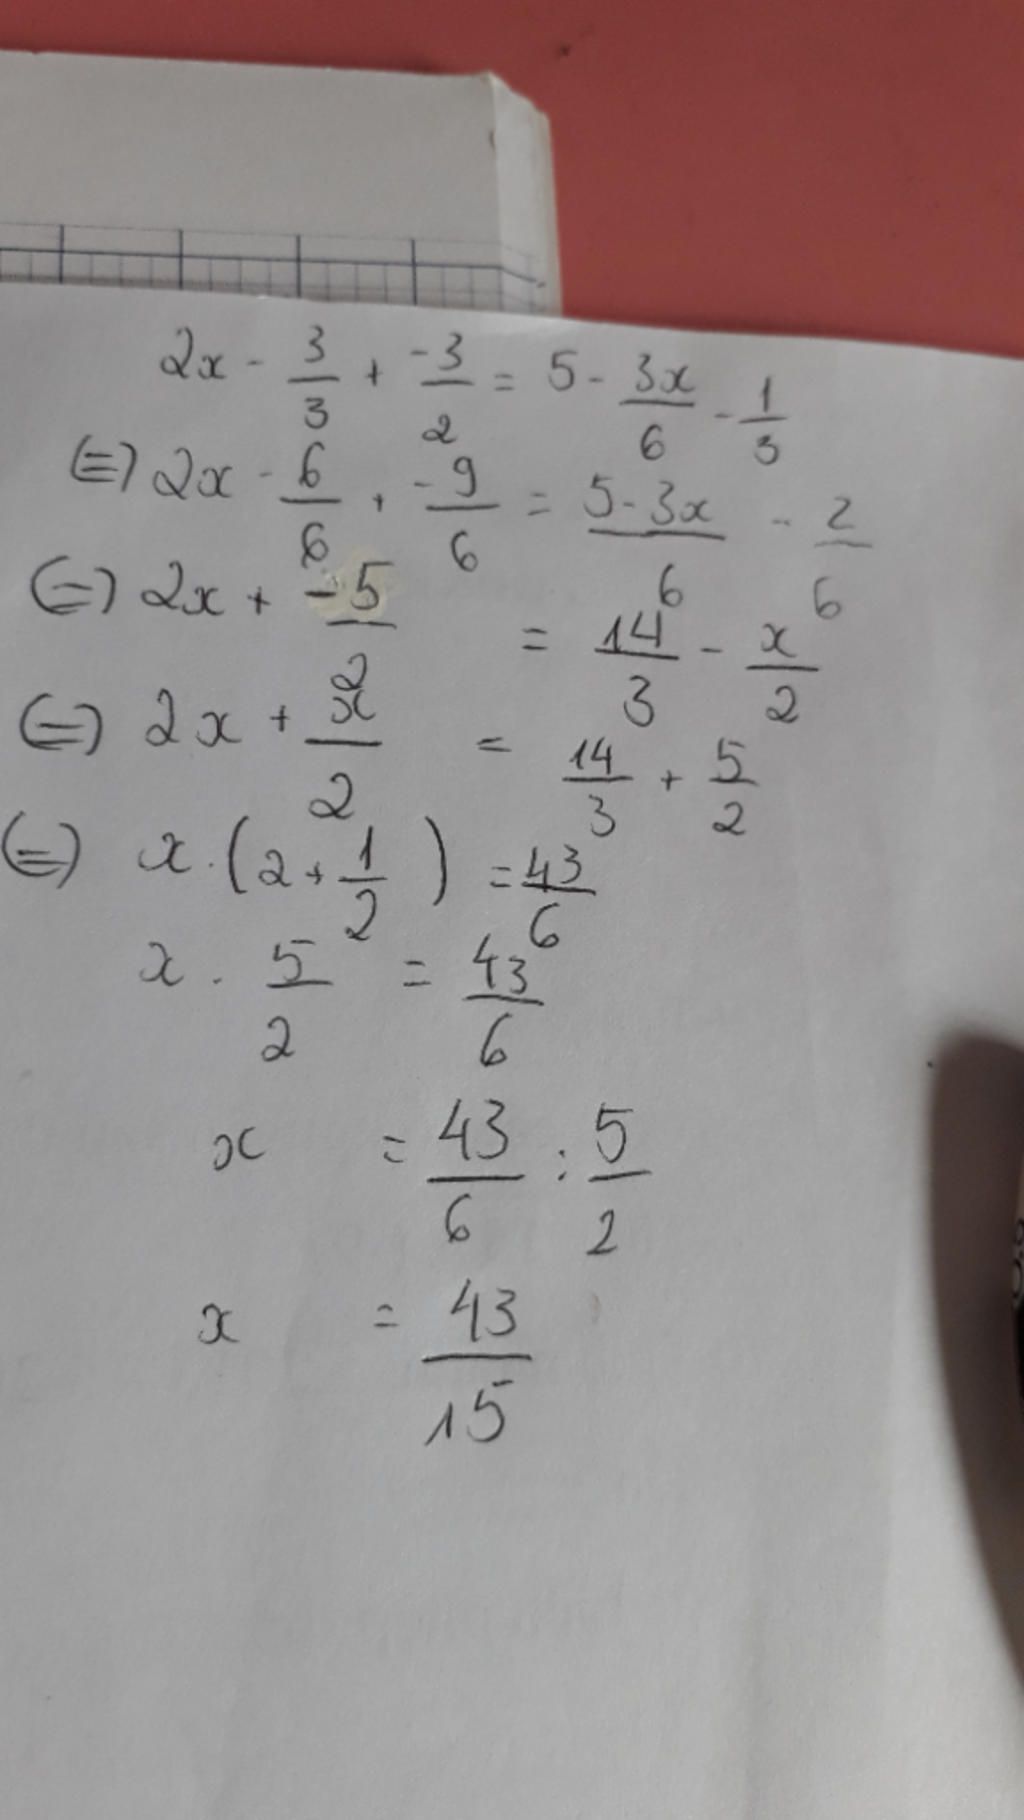 2x - 3/3 + -3/2 = 5 - 3x/6 - 1/3
(=) 2x - 6/6 + -9/6 = 5-3x/6 - 2/6
(=) 2x + -5/2 = 14/3 - x/2
(=) 2x + x/2 = 14/3 + 5/2
(=) x . (2 + 1/2) = 43/6
x . 5/2 = 43/6
x = 43/6 : 5/2
x = 43/15